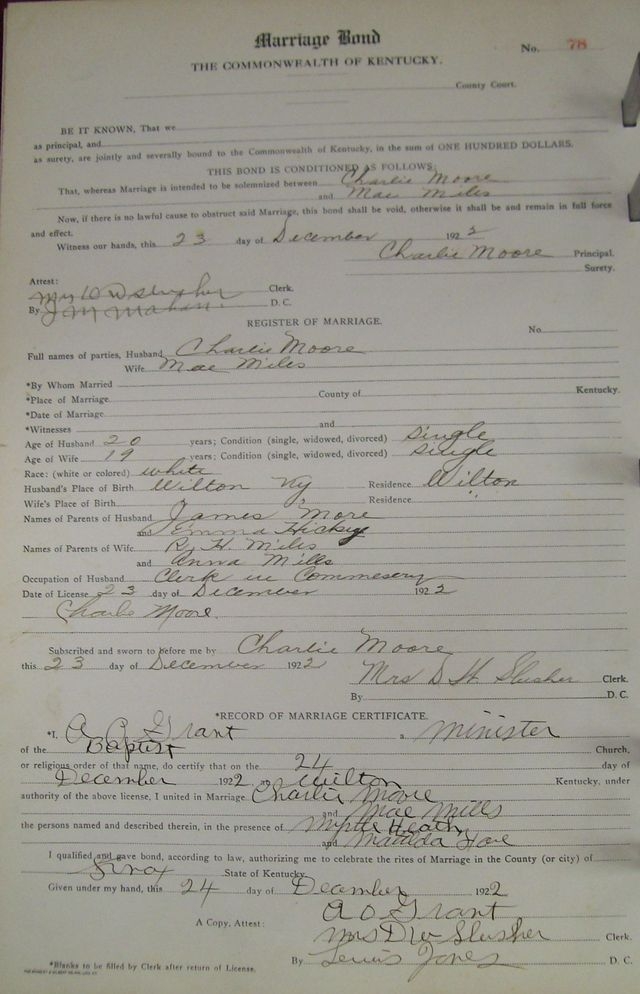 Marriage Bond
No. 78
THE COMMONWEALTH OF KENTUCKY.
County Court.
BE IT KNOWN, That we
as principal, and
as surety, are jointly and severally bound to the Commonwealth of Kentucky, in the sum of ONE HUNDRED DOLLARS.
THIS BOND IS CONDITIONED AS FOLLOWS:
That, whereas Marriage is intended to be solemnized between Charlie Moore
and Mae Miles
Now, if there is no lawful cause to obstruct said Marriage, this bond shall be void, otherwise it shall be and remain in full force
and effect.
Witness our hands, this 23 day of December 1922
Charlie Moore Principal.
Surety.
Attest:
Mrs D W Slusher Clerk.
By J M Mahan. D. C.
REGISTER OF MARRIAGE.
No.
Full names of parties, Husband Charlie Moore
Wife Mae Miles
*By Whom Married
*Place of Marriage County of Kentucky.
*Date of Marriage
*Witnesses and
Age of Husband 20 years; Condition (single, widowed, divorced) single
Age of Wife 19 years; Condition (single, widowed, divorced) single
Race: (white or colored) white
Husband's Place of Birth Wilton Ky Residence Wilton
Wife's Place of Birth Residence "
Names of Parents of Husband James More
and Emma Hickey
Names of Parents of Wife R. H. Miles
and Anna Mills
Occupation of Husband Clerk in Commesery
Date of License 23 day of December 1922
Charlie Moore.
Subscribed and sworn to before me by Charlie Moore
this 23 day of December 1922
Mrs D W Slusher Clerk.
By D. C.
*RECORD OF MARRIAGE CERTIFICATE.
*I, A O Grant a minister
of the Baptist Church,
or religious order of that name, do certify that on the 24 day of
December 1922, Wilton Kentucky, under
authority of the above license, I united in Marriage Charlie Moore
and Mae Mills
the persons named and described therein, in the presence of Myrtle Heath
and Matilda
I qualified and gave bond, according to law, authorizing me to celebrate the rites of Marriage in the County (or city) of
Knox State of Kentucky.
Given under my hand, this 24 day of December 1922
A O Grant
A Copy, Attest: Mrs D W Slusher Clerk.
By Lewis Jones D. C.
*Blanks to be filled by Clerk after return of License.